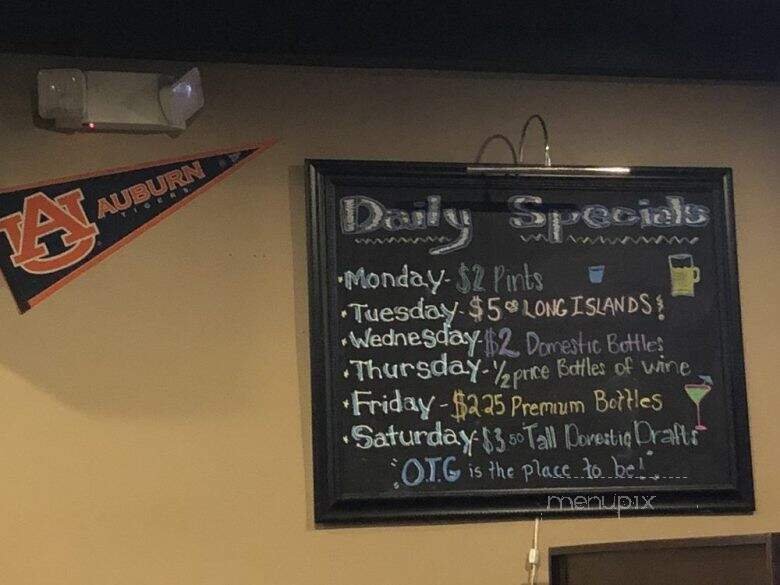 AU
AUBURN
TIGERS
Daily Specials
•Monday-$2 Pints
•Tuesday-$5.00 LONG ISLANDS!
•Wednesday-$2 Domestic Bottles
•Thursday-1/2 price Bottles of wine
•Friday-$2.25 Premium Bottles
•Saturday-$3.50 Tall Domestic Drafts
"O.T.G is the place to be!"
menupix